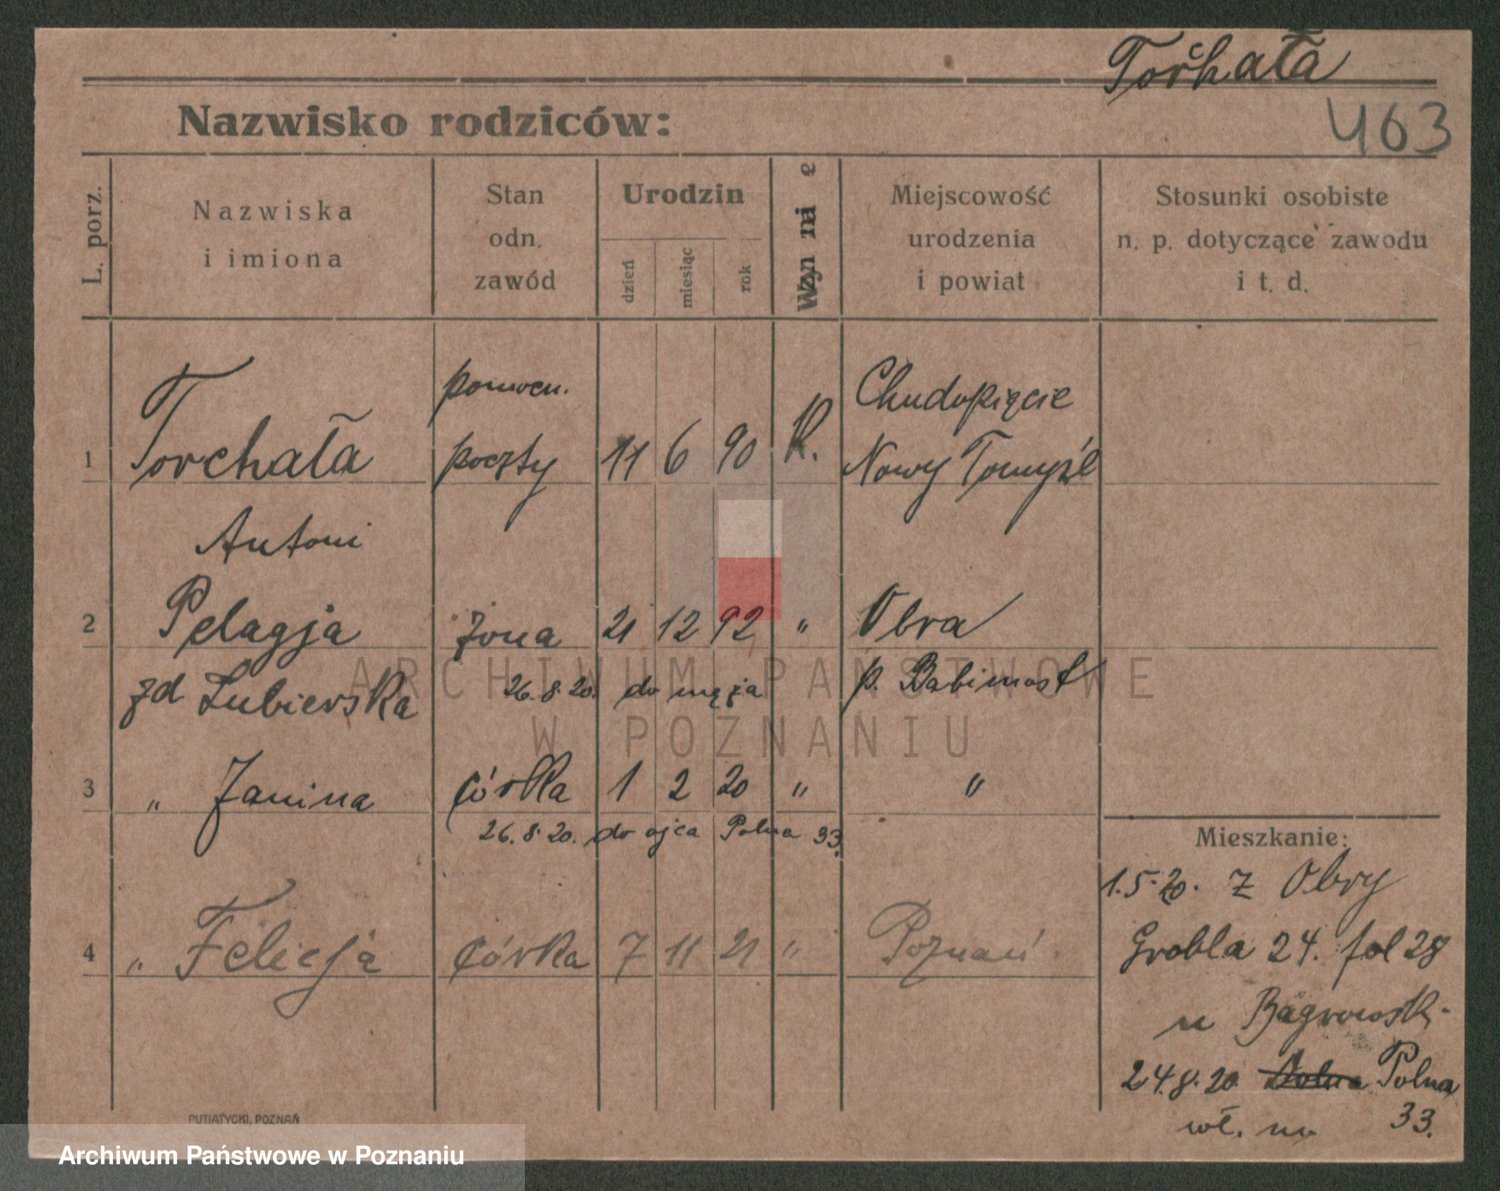 Torchała
463
Nazwisko rodziców:
L. porz.
Nazwiska
i imiona
Stan
odn.
zawód
Urodzin
dzień
miesiąc
rok
Wyznanie
Miejscowość
urodzenia
i powiat
Stosunki osobiste
n. p. dotyczące zawodu
i t. d.
pomocn.
Chudopięcie
1 Torchała poczty 11 6 90 K. Nowy Tomyśl
Antoni
2 Pelagja żona 21 12 92 " Obra
zd Łubierska 26.8.20. do męża p. Babimost
3 " Janina córka 1 2 20 " "
26.8.20. do ojca Polna 33.
4 " Felicja córka 7 11 21 " Poznań.
Mieszkanie:
1.5.20. z Obry
Grobla 24. fol 28
u Bagrowsk.
24.8.20 Polna
33.
PUTIATYCKI, POZNAŃ
ARCHIWUM PAŃSTWOWE
W POZNANIU
Archiwum Państwowe w Poznaniu